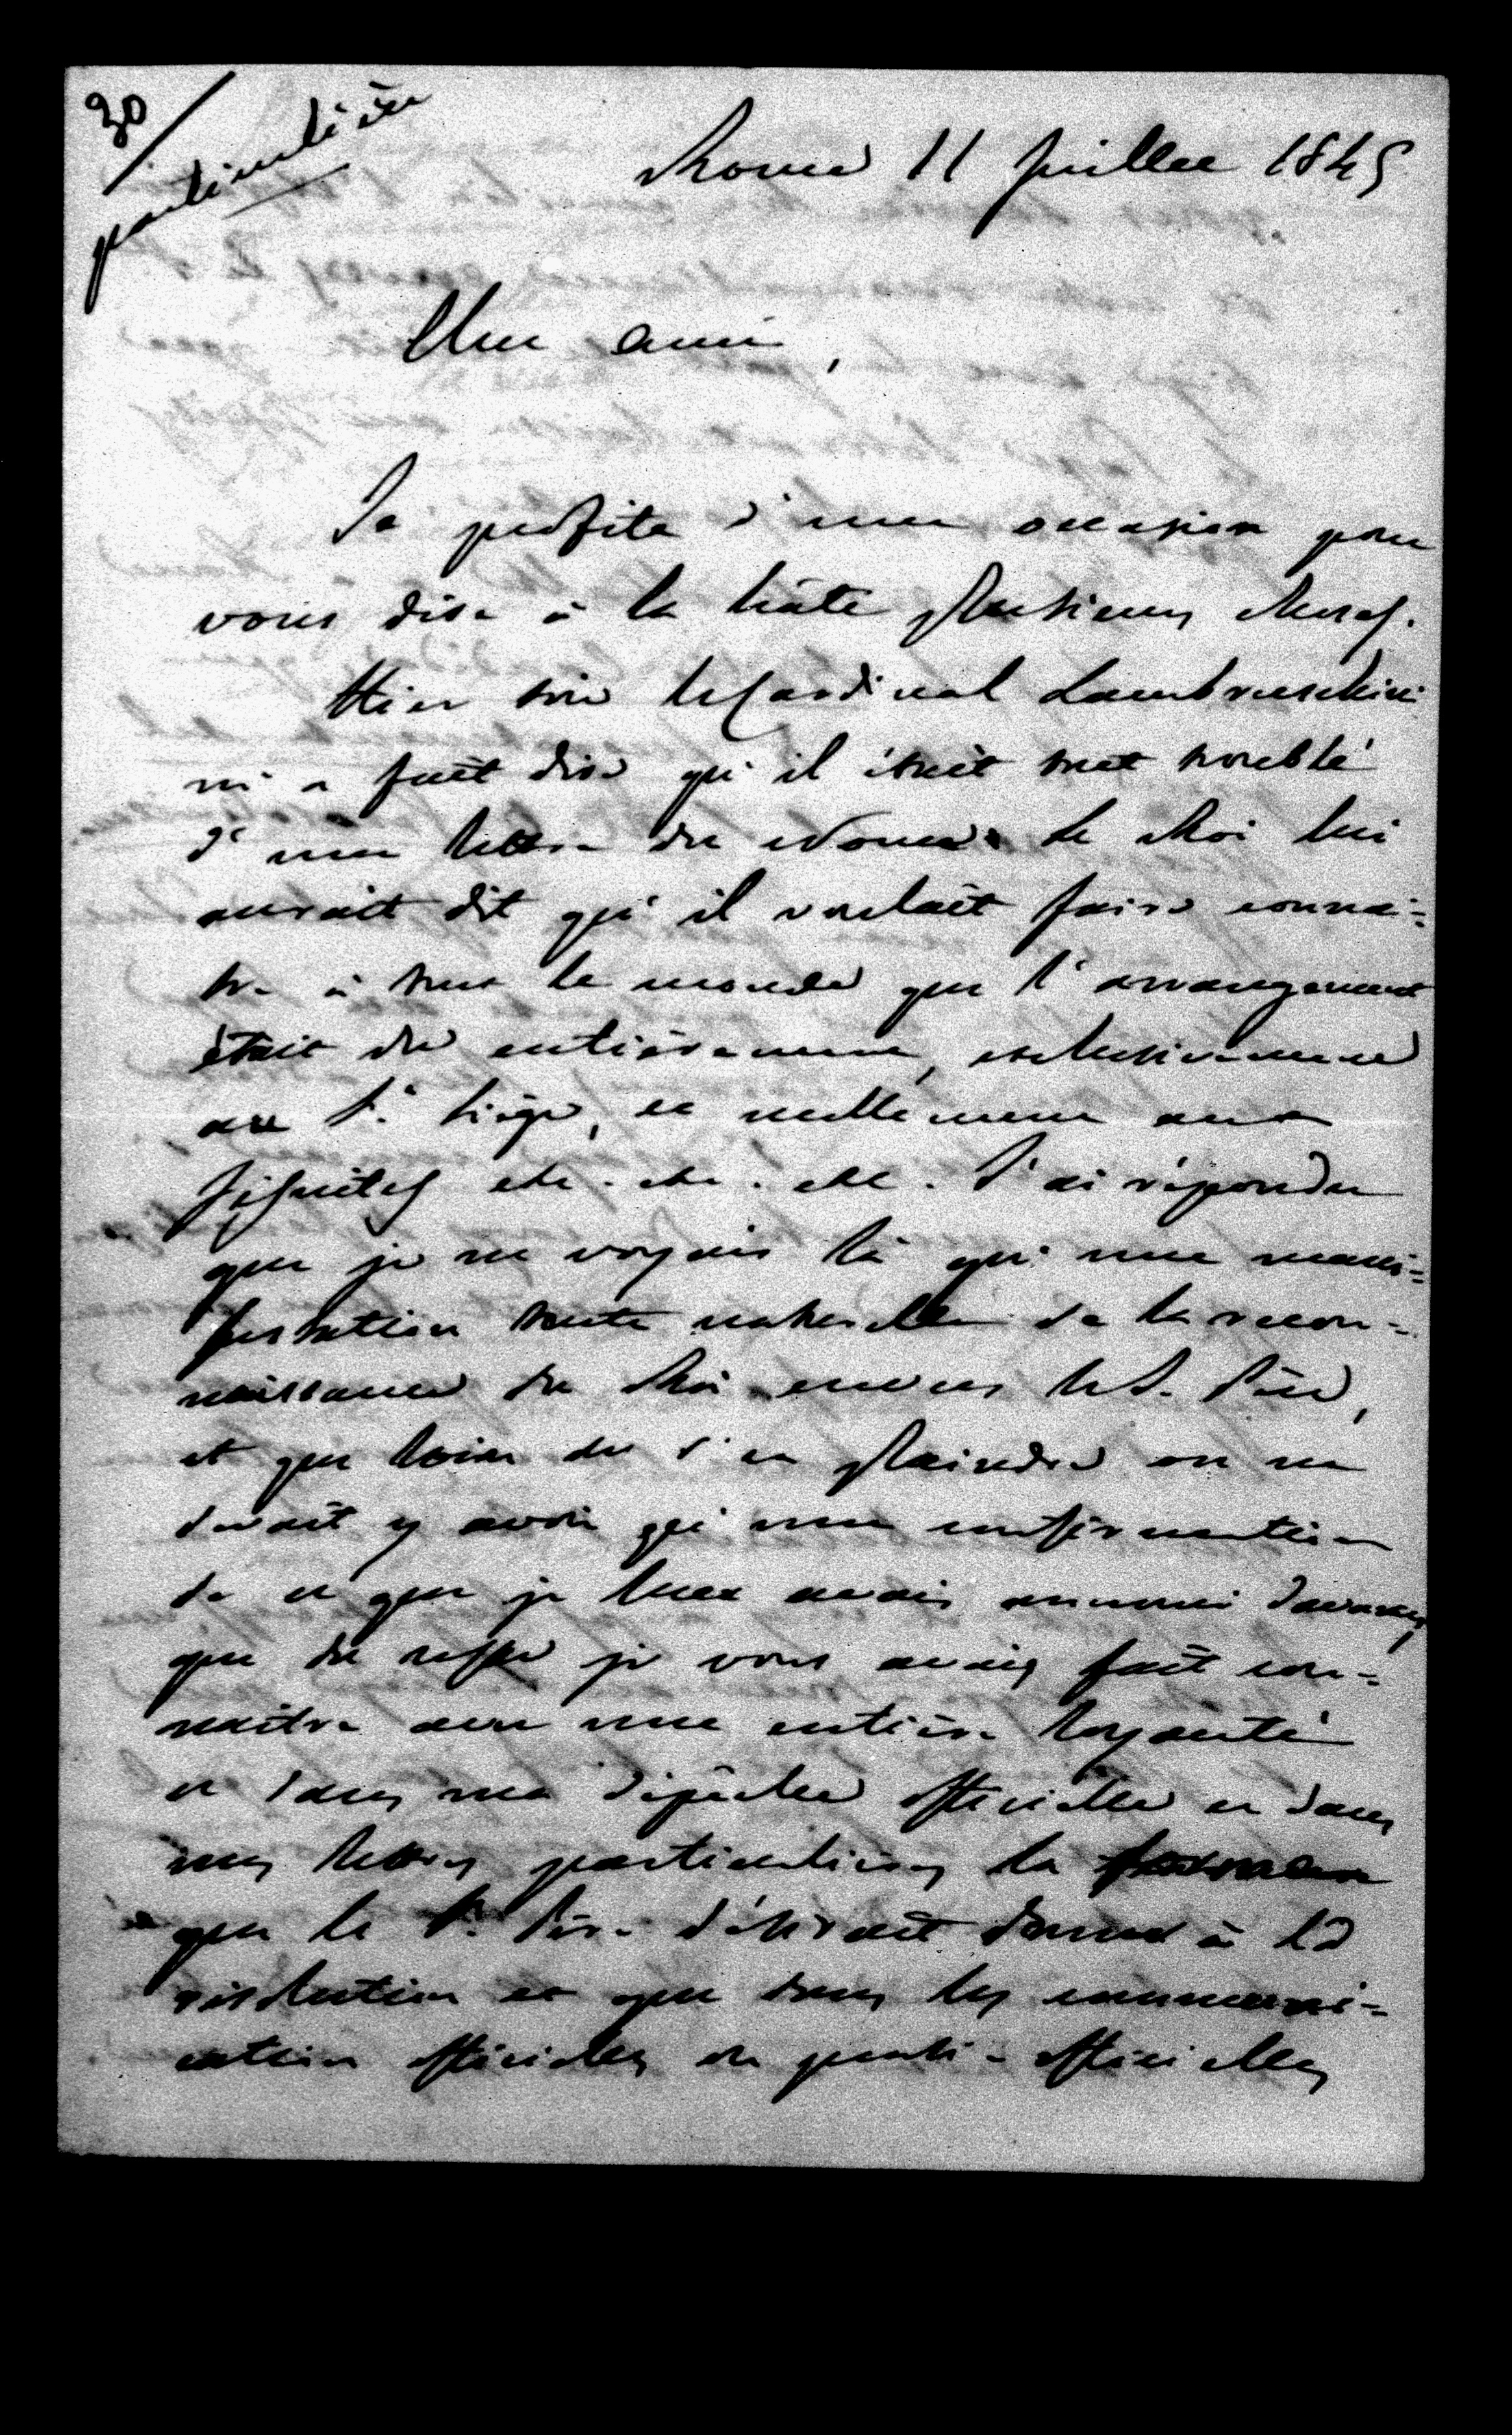 30/
particulière
Rome 11 Juillet 1845
Mon ami,
Je profite d'une occasion pour
vous dire à la hâte plusieurs choses.
Hier soir le Cardinal Lambruschini
m'a fait dire qu'il était tout troublé
d'une lettre du Nonce. Le Roi lui
aurait dit qu'il voulait faire connaî=
tre à tout le monde que l'arrangement
était dû entièrement, exclusivement
au St. Siège, et nullement aux
Jésuites etc. etc. etc. J'ai répondu
que je ne voyais là qu'une mani=
festation toute naturelle de la recon=
naissance du Roi envers le S. Père,
et que loin de s'en plaindre on ne
devait y avoir qu'une confirmation
de ce que je leur avais annoncé d'avance,
que du reste je vous avais fait con=
naître avec une entière loyauté
et dans ma dépêche officielle et dans
mes lettres particulières la
que le St. Père désirait donner à la
résolution et que dans les communi=
cation officielles ou quasi-officielles